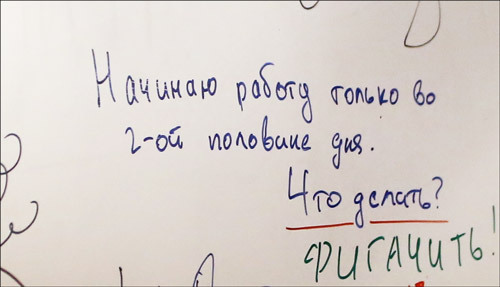 Начинаю работу только во
2-ой половине дня.
Что делать?
ФИГАЧИТЬ!